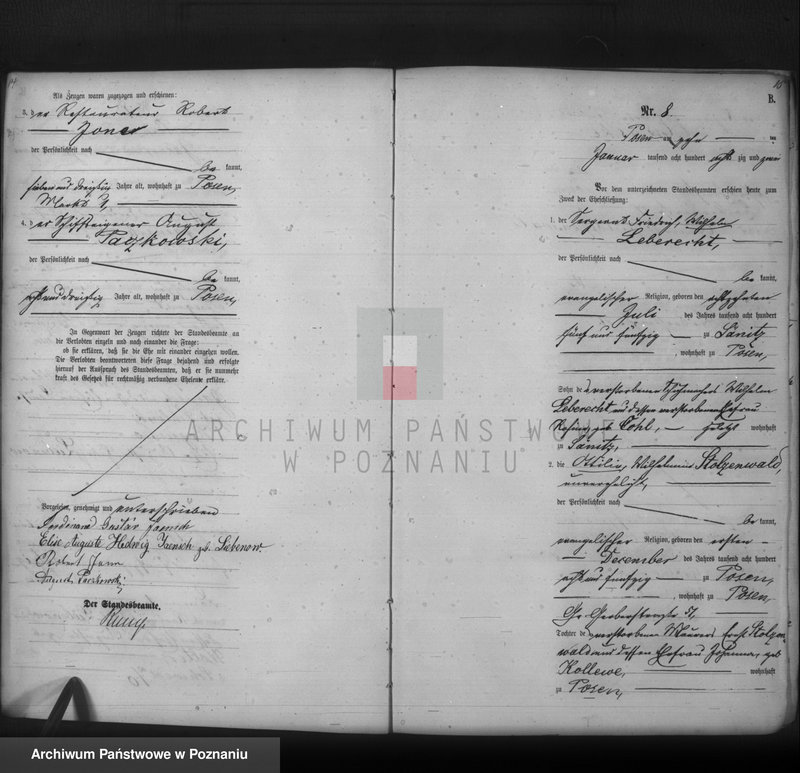 Als Zeugen waren zugezogen und erschienen:
3. der Restaurateur Robert
der Persönlichkeit nach
be kannt,
sieben und dreißig Jahre alt, wohnhaft zu Posen,
Markt
4. der Schiffseigener August
Paczkowski,
der Persönlichkeit nach
be kannt,
acht und dreißig Jahre alt, wohnhaft zu Posen,
In Gegenwart der Zeugen richtete der Standesbeamte an
die Verlobten einzeln und nach einander die Frage:
ob sie erklären, daß sie die Ehe mit einander eingehen wollen.
Die Verlobten beantworteten diese Frage bejahend und erfolgte
hierauf der Ausspruch des Standesbeamten, daß er sie nunmehr
kraft des Gesetzes für rechtmäßig verbundene Eheleute erkläre.
Vorgelesen, genehmigt und unterschrieben
Ferdinand Gustav Jaensch
Elise Auguste Hedwig Jaensch geb. Liebenow.
Robert
August Paczkowski
Der Standesbeamte.
B.
Nr. 8.
Posen am zehn ten
Januar tausend acht hundert acht zig und zwei
Vor dem unterzeichneten Standesbeamten erschien heute zum
Zweck der Eheschließung:
1. der Sergeant Friedrich, Wilhelm
Leberecht,
der Persönlichkeit nach
be kannt,
evangelischer Religion, geboren den achtzehnten
Juli des Jahres tausend acht hundert
fünf und fünfzig zu Sänitz
, wohnhaft zu Posen,
Sohn des verstorbenen Schuhmachers Wilhelm
Leberecht und dessen verstorbenen Ehefrau
Rosine geb. Cohl, zuletzt wohnhaft
zu Sänitz,
2. die Ottilie, Wilhelmine Stolzenwald,
unverehelicht,
der Persönlichkeit nach
be kannt,
evangelischer Religion, geboren den ersten
December des Jahres tausend acht hundert
acht und fünfzig zu Posen,
, wohnhaft zu Posen,
Gr. Gerberstraße
Tochter des verstorbenen Maurers Ernst Stolzen-
wald und dessen Ehefrau Johanna, geb.
Kollewe, wohnhaft
zu Posen,
ARCHIWUM PAŃSTWOWE
W POZNANIU
Archiwum Państwowe w Poznaniu